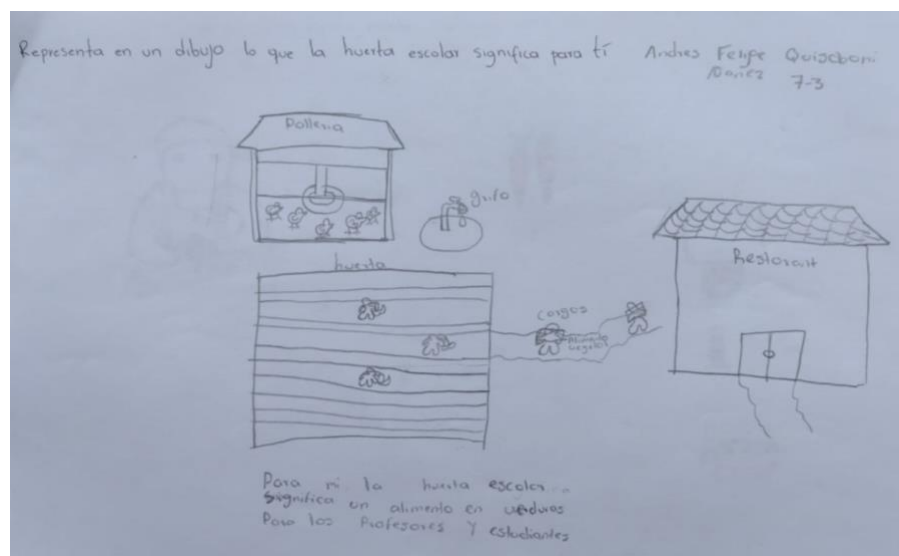 Representa en un dibujo lo que la huerta escolar significa para tí Andres Felipe
7-3
Polleria
grifo
huerta
Restorant
cargos
Para mi la huerta escolar
significa un alimento en verduras
Para los Profesores y estudiantes